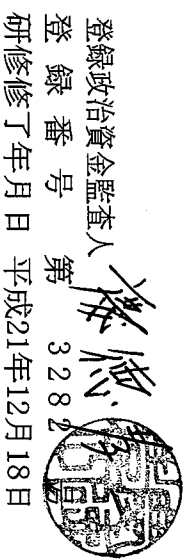 登録政治資金監査人
登録番号 第3282号
研修修了年月日 平成21年12月18日